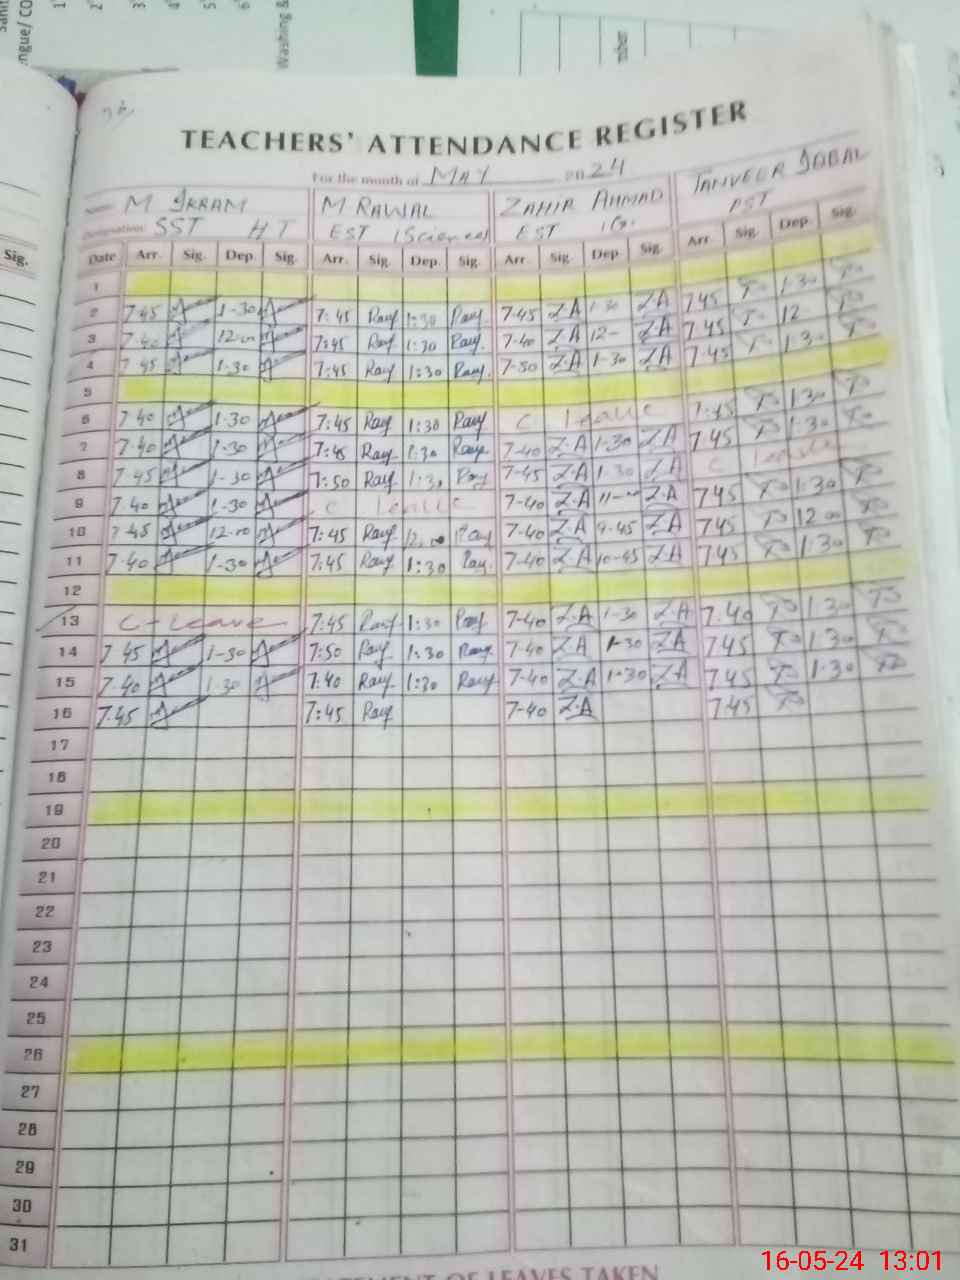 Washing &
TEACHERS' ATTENDANCE REGISTER
For the month of MAY 2024
Name: M IKRAM M RAWAL ZAHIR AHMAD TANVEER IQBAL
Designation: SST HT EST (Science) EST IG. PST
Sig.
Date Arr. Sig. Dep. Sig. Arr. Sig. Dep. Sig. Arr. Sig. Dep. Sig. Arr. Sig. Dep Sig.
1
2 7-45 1-30 7:45 Ray 1:30 Ray. 7-45 Z.A 1-30 Z.A 7.45 1.30
3 7-40 12-00 7:45 Ray 1:30 Ray. 7-40 Z.A 12- Z.A 7.45 12
4 7.45 1-30 7:45 Ray 1:30 Ray. 7-50 Z.A 1-30 Z.A 7.45 1.30
5
6 7-40 1-30 7:45 Ray 1:30 Ray C leave 7.45 1.30
7 7-40 1-30 7:45 Ray 1:30 Ray 7-40 Z.A 1-30 Z.A 7.45 1.30
8 7-45 1-30 7:50 Ray 1:30 Ray 7-45 Z.A 1-30 Z.A C leave
9 7-40 1-30 C leave 7-40 Z.A 11- Z.A 7.45 1.30
10 7-45 12-00 7:45 Ray 12 Ray 7-40 Z.A 9-45 Z.A 7.45 12 00
11 7-40 1-30 7:45 Ray 1:30 Ray. 7-40 Z.A 10-45 Z.A 7.45 1.30
12
13 C-Leave 7:45 Ray 1:30 Ray 7-40 Z.A 1-30 Z.A 7.40 1.30
14 7 45 1-30 7:50 Ray 1:30 Ray 7-40 Z.A 1-30 Z.A 7.45 1.30
15 7-40 1.30 7:40 Ray 1:30 Ray 7-40 Z.A 1-30 Z.A 7.45 1.30
16 7-45 7:45 Ray 7-40 Z.A 7.45
17
18
19
20
21
22
23
24
25
26
27
28
29
30
31
STATEMENT OF LEAVES TAKEN
16-05-24 13:01